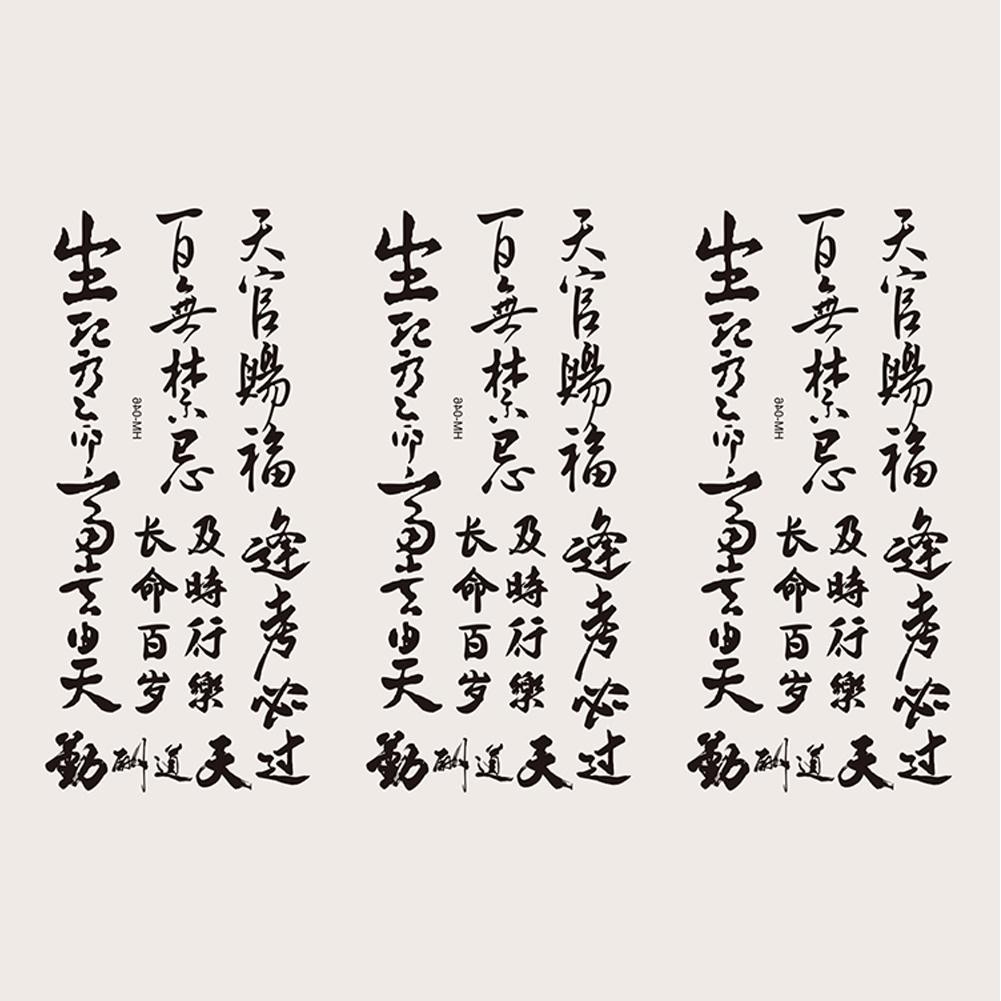 天官賜福
百無禁忌
生死有命富貴由天
逢考必过
及時行樂
长命百岁
天道酬勤
天官賜福
百無禁忌
生死有命富貴由天
逢考必过
及時行樂
长命百岁
天道酬勤
天官賜福
百無禁忌
生死有命富貴由天
逢考必过
及時行樂
长命百岁
天道酬勤